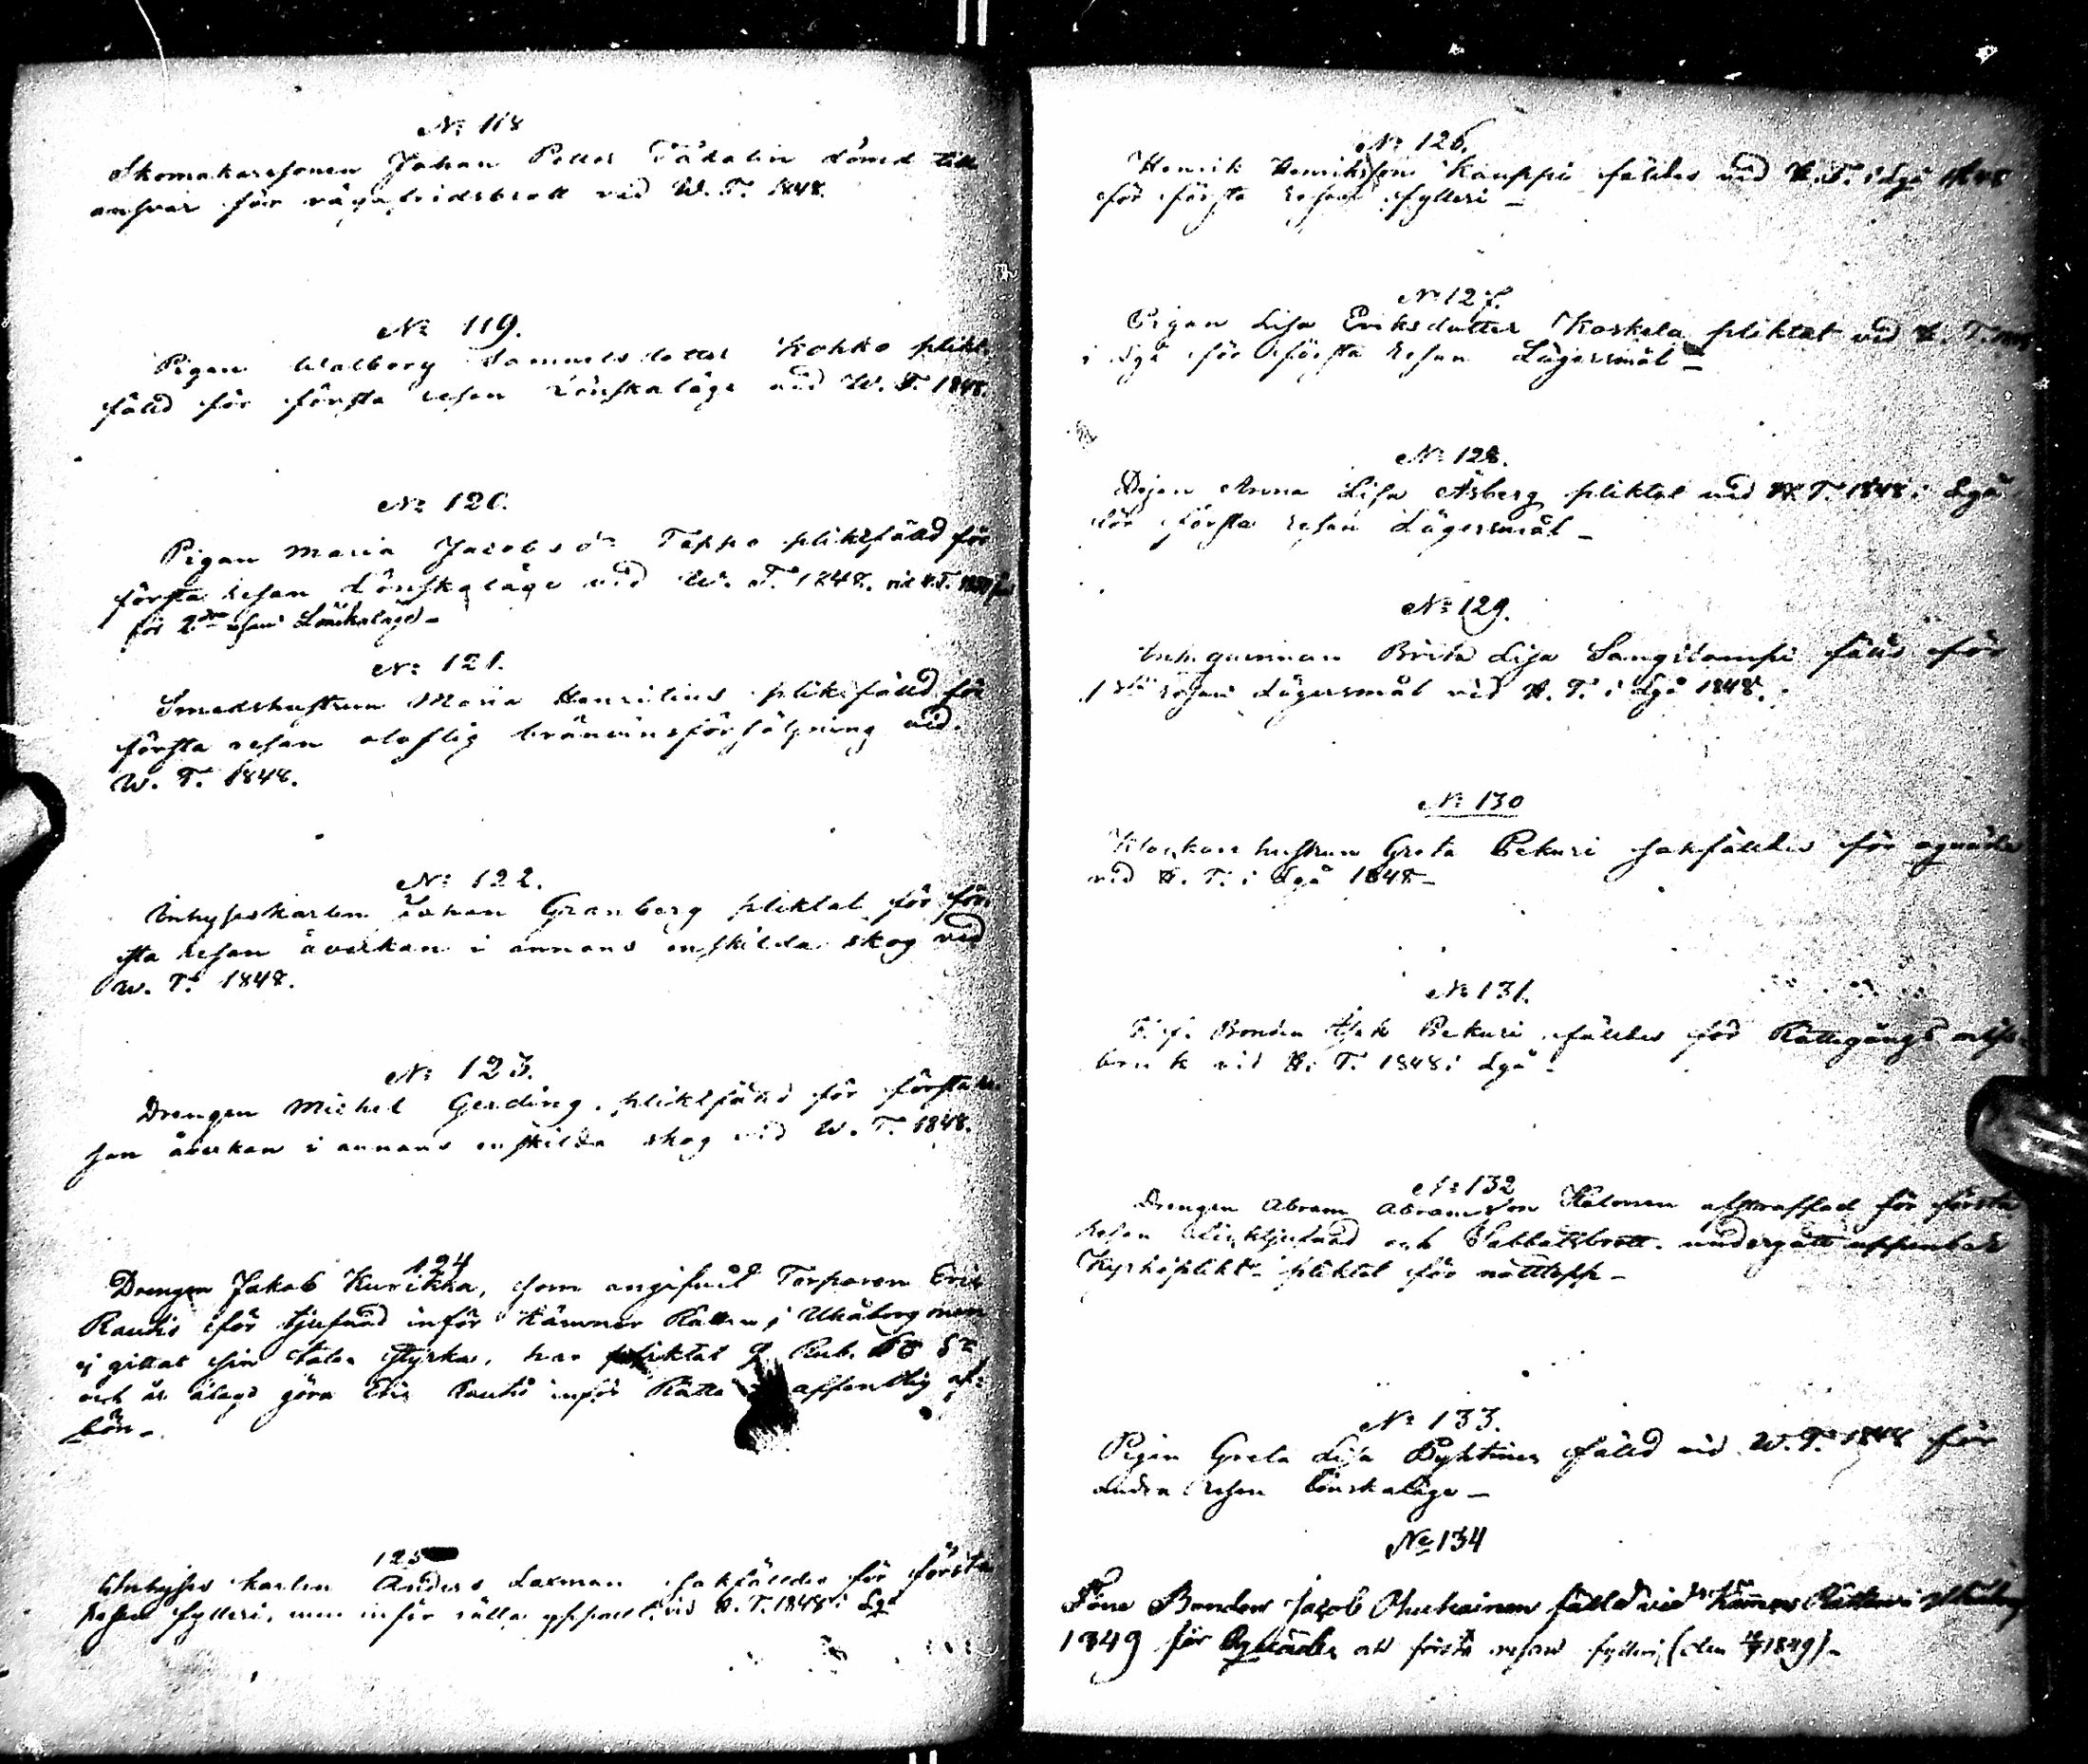 No 118
Skomakaresonen Johan Petter Tädalin dömd till
ansvar för vägafridsbrott vid W. T. 1848.
No 119.
Pigan Walborg Sammelsdotter Kohko plikt
fälld för första resan Lönskaläge vid W. T. 1848.
No 120.
Pigan Maria Jacobsdr Tappo pliktfälld för
första resan Lönskaläge vid W. T. 1848. vid
för 2dra resan Lönskaläge -
No 121.
Smedshustrun Maria pliktfälld för
första resan oloflig bränvinsförsäljning vid
W. T. 1848.
No 122.
Inhyseskarlen Johan Granberg pliktat för för-
sta resan åverkan i annans enskilda skog vid
W. T. 1848.
No 123.
Drengen Michel Gerding pliktfälld för första re-
san åverkan i annans enskilda skog vid W. T. 1848.
124
Drengen Jakob Kurikka, som angifvit Torparen Eric
Rautio för tjufnad inför Kämner Rätten i Uleåborg men
ej gittat sin talan styrka, har pliktat Rub.
och är ålagd göra Eric Rautio inför Rätta offentlig af-
bön -
125
Inhyses karlen Anders Laxman sakfälldes för första
resan fylleri, men inför rätta vid H. T. 1848 i Lgå
No 126.
Henrik Henriksson Kauppi fälldes vid H. T. i Lgå 1848
för första resan fylleri -
No 127.
Pigan Lisa Eriksdotter Koskela pliktat vid H. T. 1848
i Lgå för första resan Lägersmål -
No 128.
Pigan Anna Lisa Åsberg pliktat vid H. T. 1848 i Lgå
för första resan Lägersmål -
No 129.
Inh. qvinnan Brita Lisa fälld för
1sta resan Lägersmål vid H. T. i Lgå 1848.
No 130
Klockare hustrun Greta Pekuri sakfälldes för oqväde
vid H. T. i Lgå 1848 -
No 131.
F. d. Bonden Isak Pekuri fälldes för Rättegångs miss-
bruk vid H. T. 1848 i Lgå -
No 132
Drengen Abram Abramsson afstraffad för första
resan tjufnad och Sabbatsbrott. undergått uppenbar
Kyrkoplikt - pliktat för
No 133.
Pigan Greta Lisa Pyhtinen fälld vid W. T. 1848 för
andra resan Lönskaläge -
No 134
Förre Bonden Jacob fälld vid Kämners Rätten i Uleåborg
1849 för Oqväde och första resan fylleri (den 1849) -